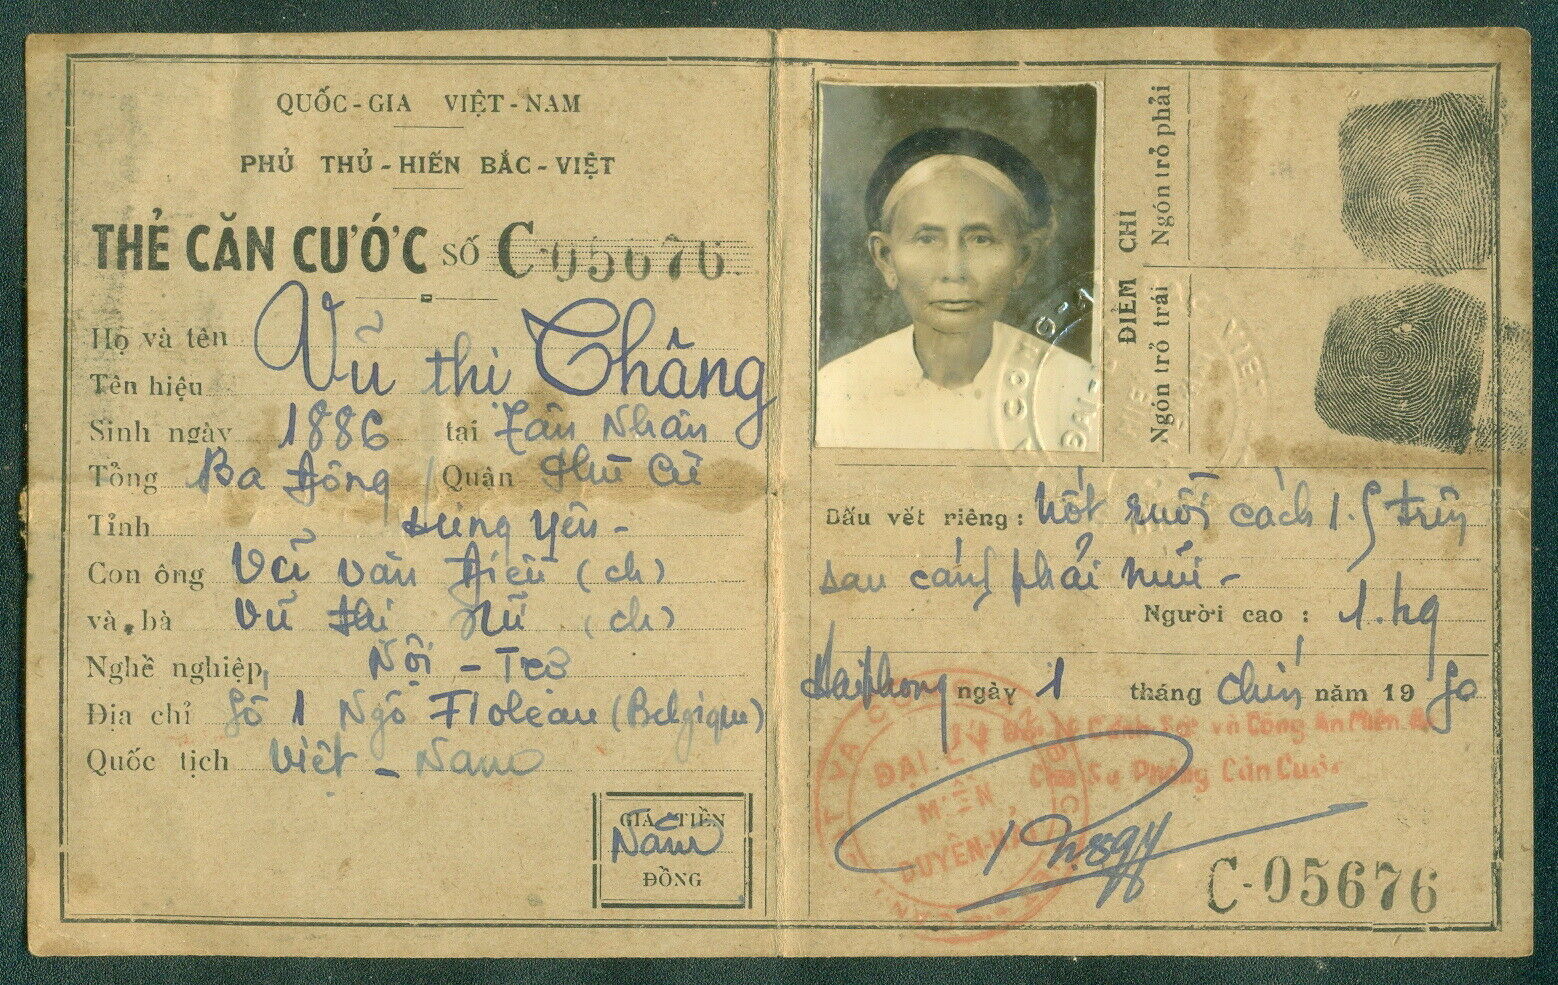 QUỐC-GIA VIỆT-NAM
PHỦ THỦ-HIẾN BẮC-VIỆT
THẺ CĂN CƯỚC SỐ C-05676
Họ và tên Vũ thị Chăng
Tên hiệu
Sinh ngày 1886 tại Tân Nhân
Tổng Ba Đông Quận Phù Cừ
Tỉnh Hưng Yên -
Con ông Vũ văn Điều (ch)
và bà Vũ thị (ch)
Nghề nghiệp Nội - Trợ
Địa chỉ Số 1 Ngõ (Belgique)
Quốc tịch Việt - Nam
GIÁ TIỀN
Năm
ĐỒNG
ĐIỂM CHỈ
Ngón trỏ phải
Ngón trỏ trái
Dấu vết riêng: Nốt ruồi cách 1.5 trên
sau cánh phải mũi -
Người cao:
Haiphong ngày 1 tháng chín năm 19 50
Cảnh Sát và Công An Miền
Chủ Sự Phòng Căn Cước
ĐẠI LÝ
MIỀN
DUYÊN-HẢI
C-05676